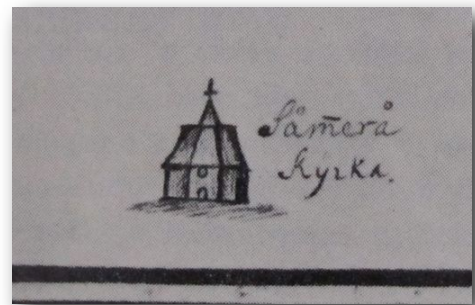 Såm̄erå
Kÿrka.